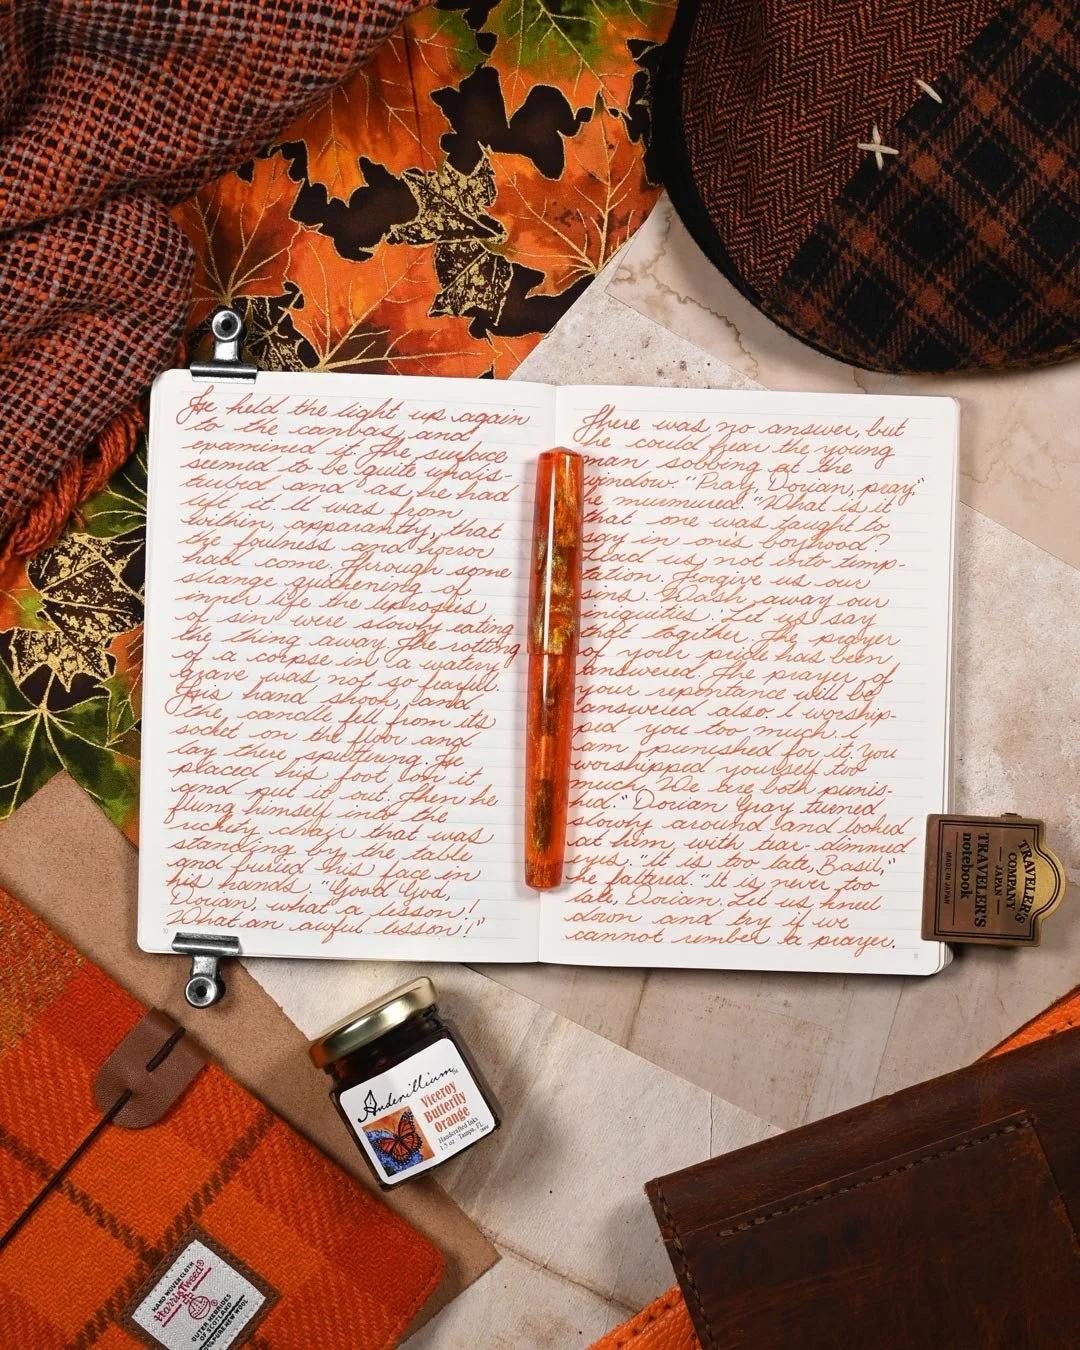 He held the light up again
to the canvas, and
examined it. The surface
seemed to be quite undis-
turbed and as he had
left it. It was from
within, apparantly, that
the foulness and horror
had come. Through some
strange quickening of
inner life the leprosies
of sin were slowly eating
the thing away. The rotting
of a corpse in a watery
grave was not so fearful.
His hand shook, and
the candle fell from its
socket on the floor and
lay there sputtering. He
placed his foot on it
and put it out. Then he
flung himself into the
rickety chair that was
standing by the table
and buried his face in
his hands. "Good God,
Dorian, what a lesson!
What an awful lesson!"
There was no answer, but
he could hear the young
man sobbing at the
window. "Pray, Dorian, pray,"
he murmured. "What is it
that one was taught to
say in one's boyhood?
'Lead us not into temp-
tation. Forgive us our
sins. Wash away our
iniquities.' Let us say
that together. The prayer
of your pride has been
answered. The prayer of
your repentance will be
answered also. I worship-
ped you too much. I
am punished for it. You
worshipped yourself too
much. We are both punis-
hed." Dorian Gray turned
slowly around and looked
at him with tear-dimmed
eyes. "It is too late, Basil,"
he faltered. "It is never too
late, Dorian. Let us kneel
down and try if we
cannot rember a prayer.
TRAVELER'S
COMPANY
JAPAN
TRAVELER'S
notebook
MADE IN JAPAN
Anderillium
Viceroy
Butterfly
Orange
Handcrafted Inks
1.5 oz - Tampa, FL
HAND WOVEN CLOTH
Harris Tweed®
OUTER HEBRIDES
OF SCOTLAND
100% PURE NEW WOOL